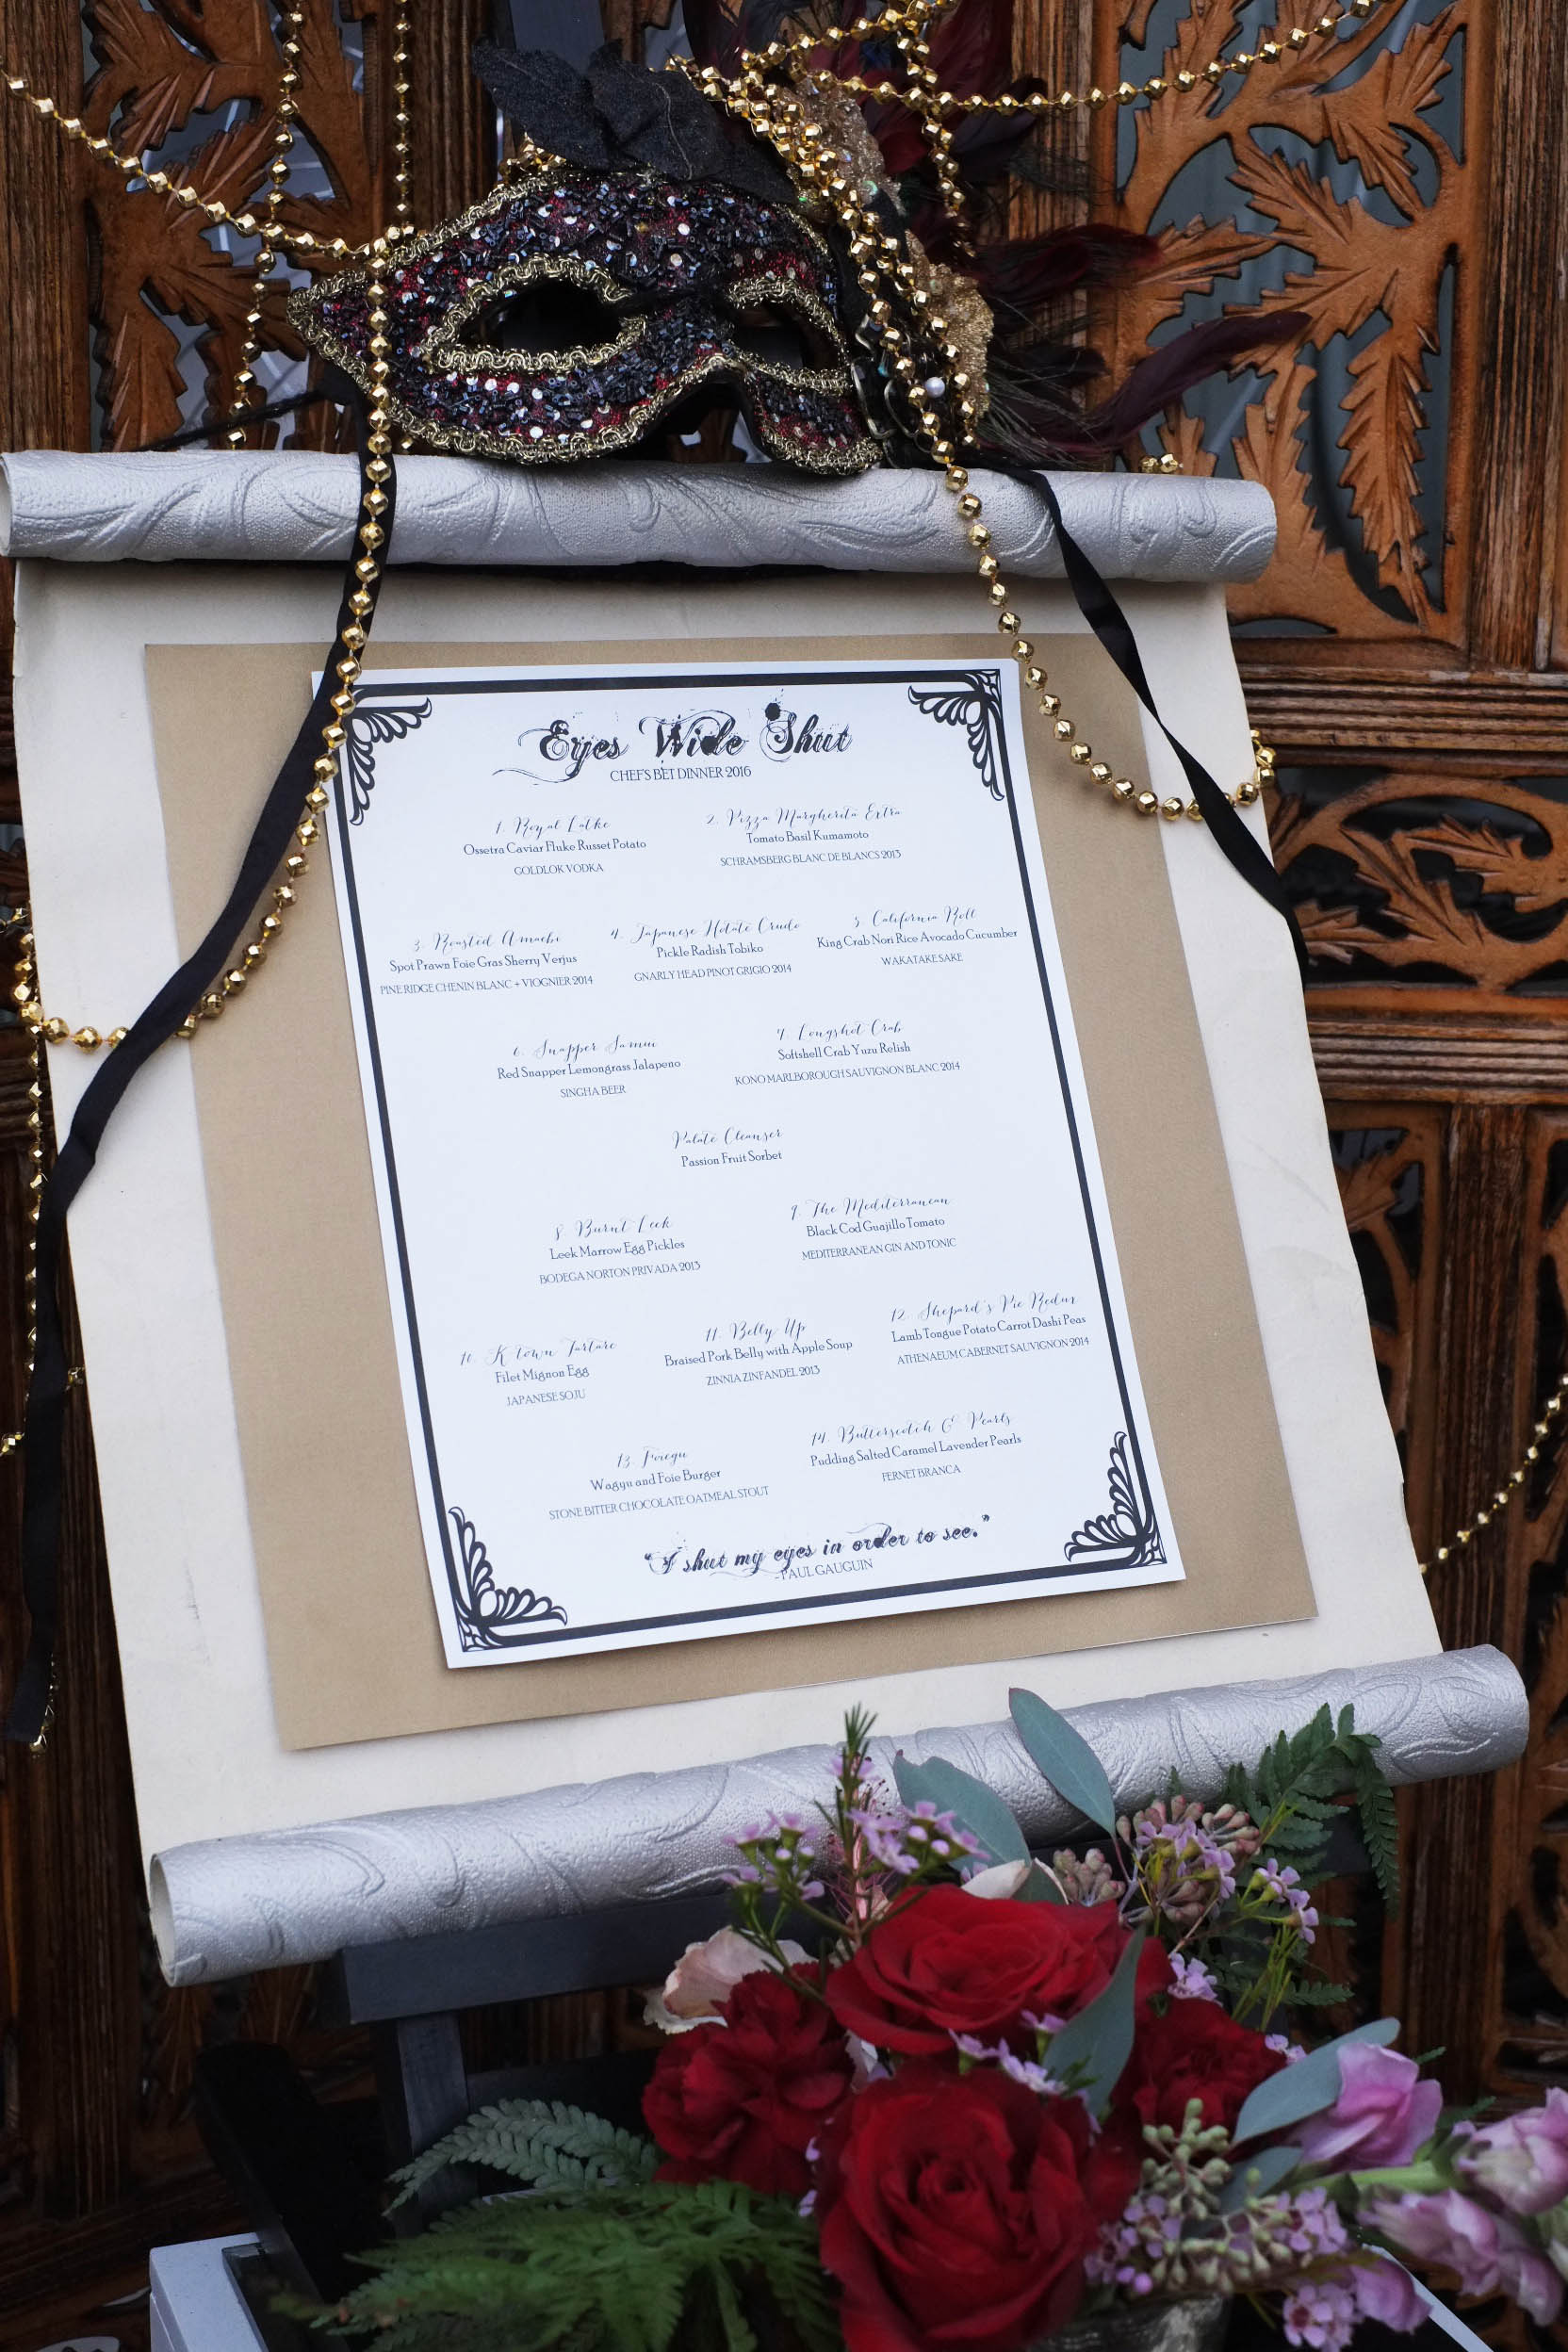 Eyes Wide Shut
CHEF'S BET DINNER 2016
1. Royal Latke
Ossetra Caviar Fluke Russet Potato
GOLDLOK VODKA
2. Pizza Margherita Extra
Tomato Basil Kumamoto
SCHRAMSBERG BLANC DE BLANCS 2013
3. Roasted Amaebi
Spot Prawn Foie Gras Sherry Verjus
PINE RIDGE CHENIN BLANC + VIOGNIER 2014
4. Japanese Hotate Crudo
Pickle Radish Tobiko
GNARLY HEAD PINOT GRIGIO 2014
5. California Roll
King Crab Nori Rice Avocado Cucumber
WAKATAKE SAKE
6. Snapper Samui
Red Snapper Lemongrass Jalapeno
SINGHA BEER
7. Longshot Crab
Softshell Crab Yuzu Relish
KONO MARLBOROUGH SAUVIGNON BLANC 2014
Palate Cleanser
Passion Fruit Sorbet
8. Burnt Leek
Leek Marrow Egg Pickles
BODEGA NORTON PRIVADA 2013
9. The Mediterranean
Black Cod Guajillo Tomato
MEDITERRANEAN GIN AND TONIC
10. K-town Tartare
Filet Mignon Egg
JAPANESE SOJU
11. Belly Up
Braised Pork Belly with Apple Soup
ZINNIA ZINFANDEL 2013
12. Shepard's Pie Redux
Lamb Tongue Potato Carrot Dashi Peas
ATHENAEUM CABERNET SAUVIGNON 2014
13. Foiegu
Wagyu and Foie Burger
STONE BITTER CHOCOLATE OATMEAL STOUT
14. Butterscotch & Pearls
Pudding Salted Caramel Lavender Pearls
FERNET BRANCA
"I shut my eyes in order to see."
-PAUL GAUGUIN